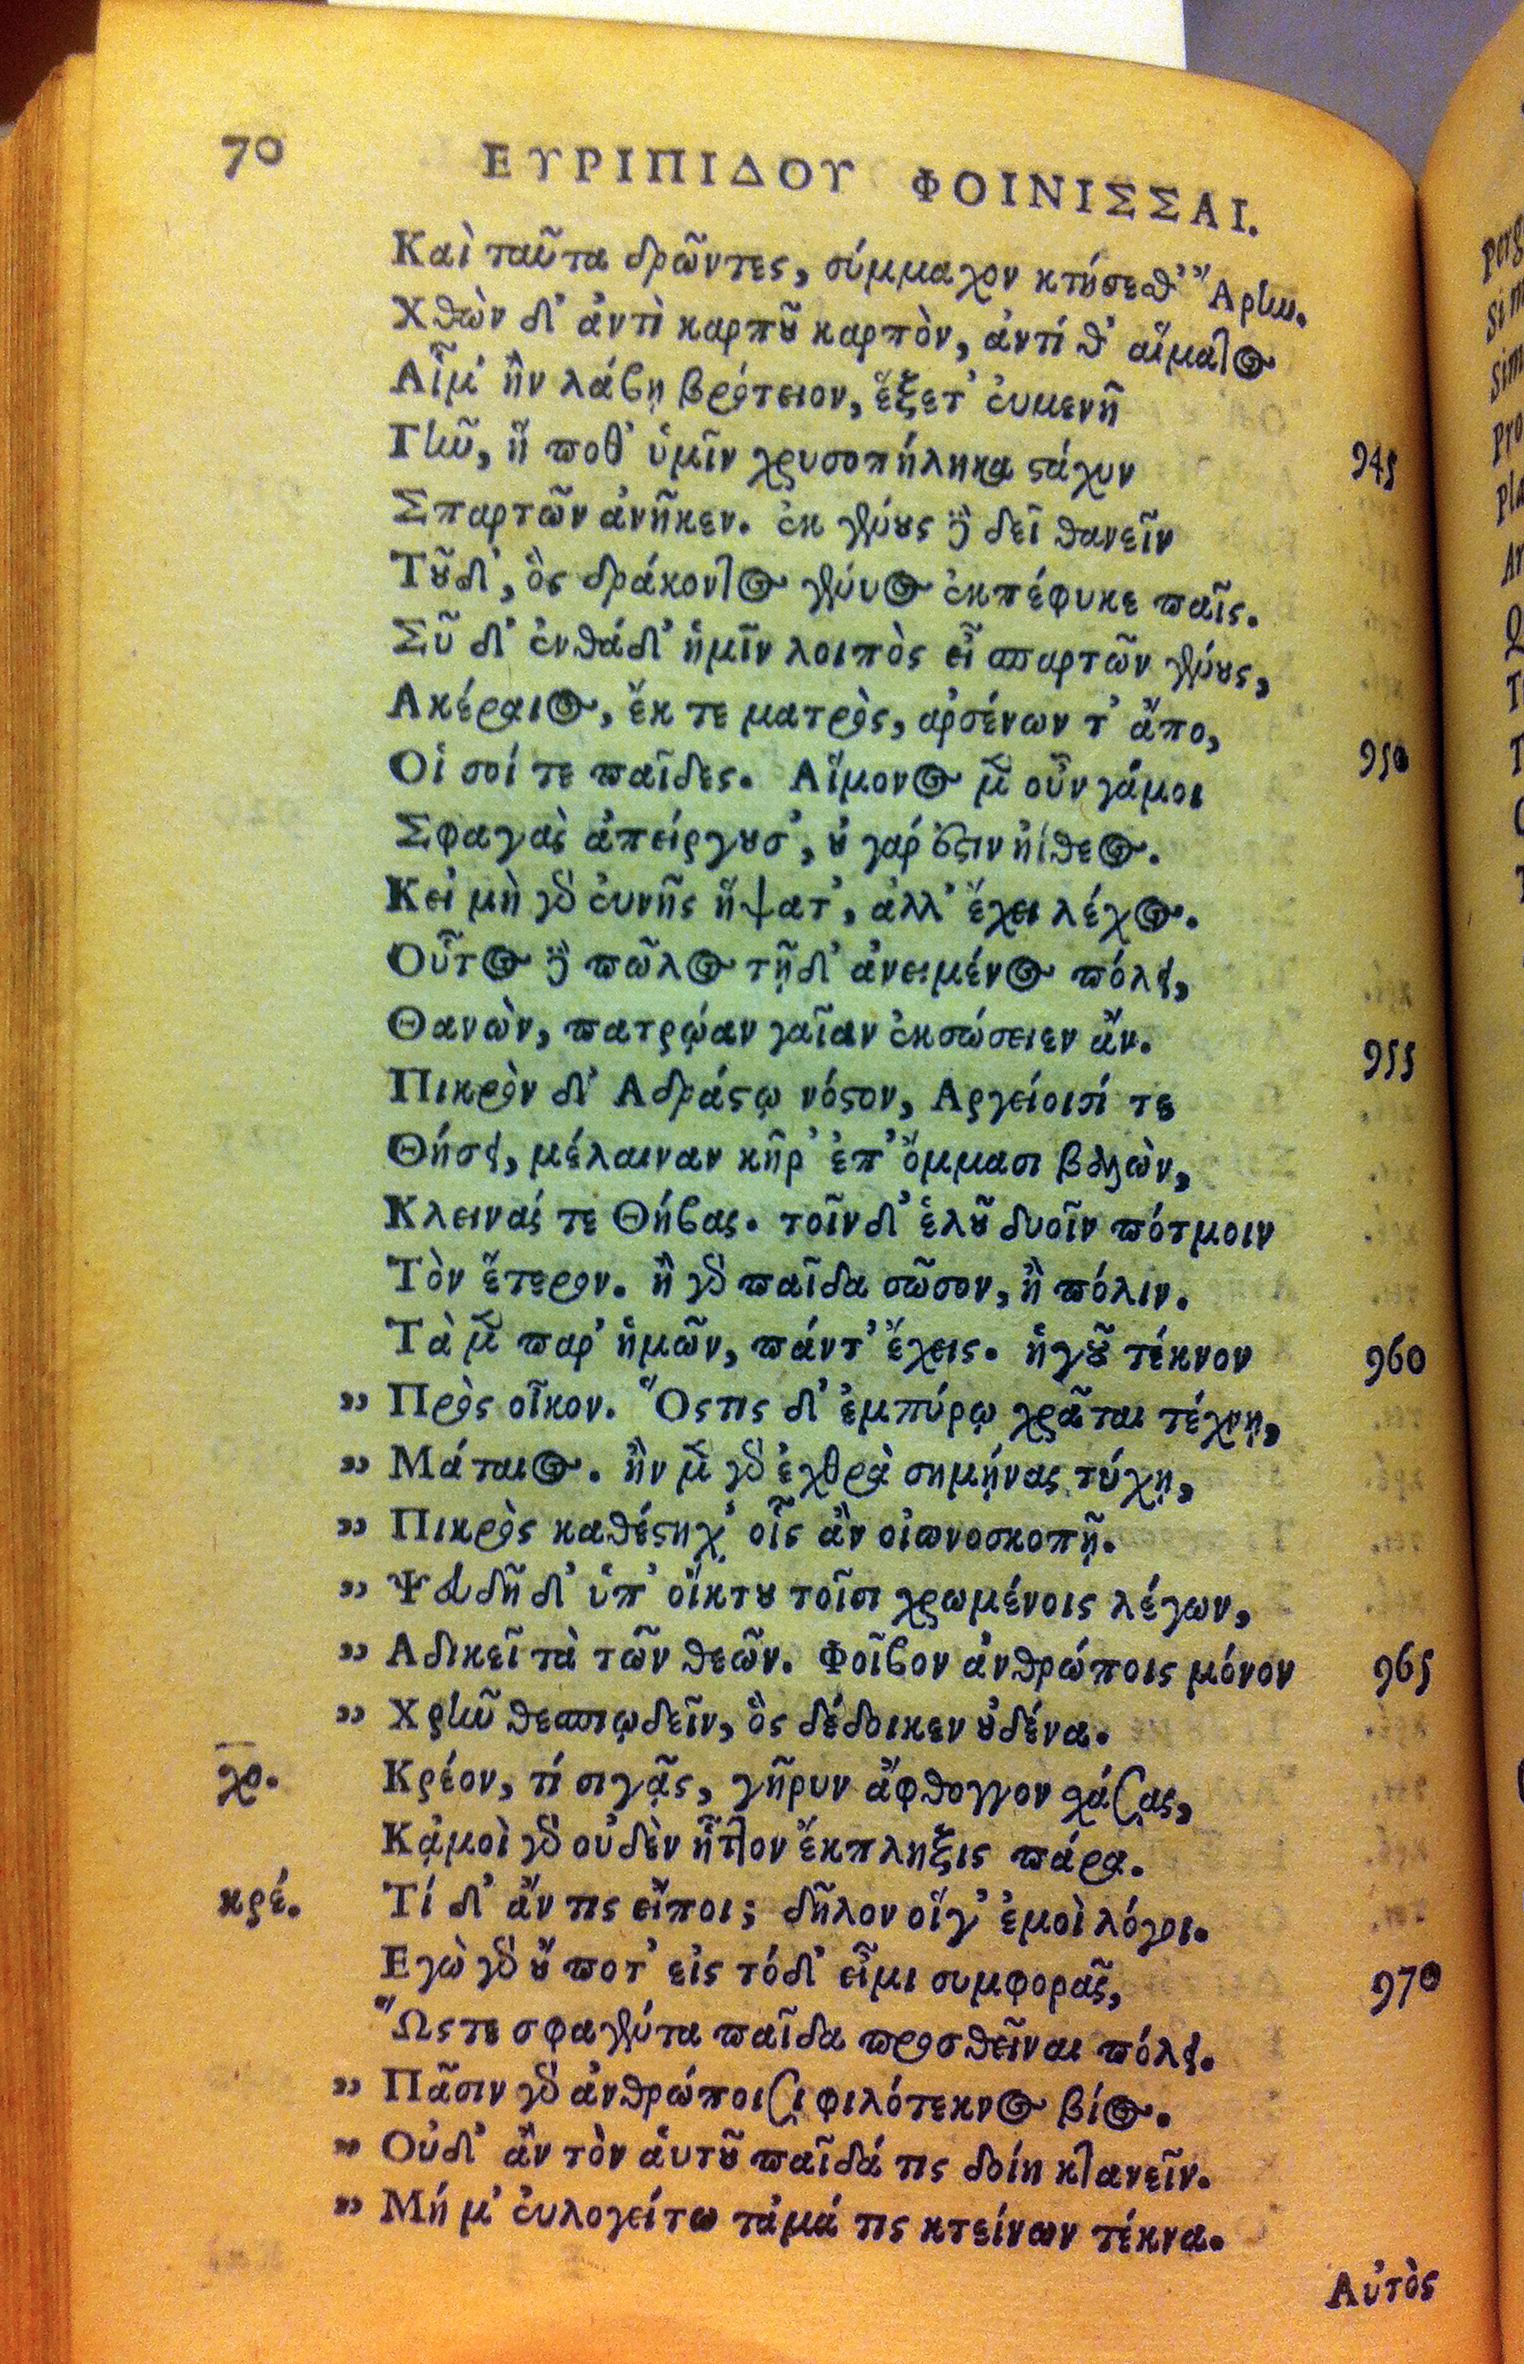 70 ΕΥΡΙΠΙΔΟΥ ΦΟΙΝΙΣΣΑΙ.
Καὶ ταῦτα δρῶντες, σύμμαχον κτήσεσθ' Ἄρην.
Χθὼν δ' ἀντὶ καρποῦ καρπὸν, ἀντί θ' αἵματος
Αἷμ' ἢν λάβῃ βρότειον, ἕξετ' εὐμενῆ
Γῆν, ἥ ποθ' ὑμῖν χρυσοπήληκα στάχυν 945
Σπαρτῶν ἀνῆκεν. ἐκ γένους δὲ δεῖ θανεῖν
Τοῦδ', ὃς δράκοντος γένυος ἐκπέφυκε παῖς.
Σῦ δ' ἐνθάδ' ἡμῖν λοιπὸς εἶ σπαρτῶν γένους,
Ακέραιος, ἔκ τε ματρὸς, ἀρσένων τ' ἄπο,
Οἱ σοί τε παῖδες. Αἵμονος μὲν οὖν γάμοι 950
Σφαγὰς ἀπείργουσ', οὐ γάρ ἐστιν ἠΐθεος.
Κεἰ μὴ γὰρ εὐνῆς ἥψατ', ἀλλ' ἔχει λέχος.
Οὗτος δὲ πῶλος τῇδ' ἀνειμένος πόλει,
Θανὼν, πατρῴαν γαῖαν ἐκσώσειεν ἄν.
Πικρὸν δ' Αδράστῳ νόστον, Αργείοισί τε 955
Θήσει, μέλαιναν κῆρ' ἐπ' ὄμμασι βαλὼν,
Κλεινάς τε Θήβας. τοῖνδ' ἑλοῦ δυοῖν πότμοιν
Τὸν ἕτερον. ἢ γὰρ παῖδα σῶσον, ἢ πόλιν.
Τὰ μὲν παρ' ἡμῶν, πάντ' ἔχεις. ἡγοῦ τέκνον 960
" Πρὸς οἶκον. Ὅστις δ' ἐμπύρῳ χρᾶται τέχνῃ,
" Μάταιος. ἢν μὲν γὰρ ἐχθρὰ σημήνας τύχῃ,
" Πικρὸς καθέστηχ' οἷς ἂν οἰωνοσκοπῇ.
" Ψευδῆ δ' ὑπ' οἴκτου τοῖσι χρωμένοις λέγων,
" Αδικεῖ τὰ τῶν θεῶν. Φοῖβον ἀνθρώποις μόνον 965
" Χρῆν θεσπιῳδεῖν, ὃς δέδοικεν οὐδένα.
χο. Κρέον, τί σιγᾷς, γῆρυν ἄφθογγον χάσας,
Κᾀμοὶ γὰρ οὐδὲν ἧττον ἔκπληξις πάρα.
κρέ. Τί δ' ἄν τις εἴποι; δῆλον οἵγ' ἐμοὶ λόγοι.
Εγὼ γὰρ οὔ ποτ' εἰς τόδ' εἶμι συμφορᾶς, 970
Ὥστε σφαγέντα παῖδα προσθεῖναι πόλει.
" Πᾶσιν γὰρ ἀνθρώποισι φιλότεκνος βίος.
" Οὐδ' ἂν τὸν αὑτοῦ παῖδά τις δοίη κτανεῖν.
" Μή μ' εὐλογείτω τἀμά τις κτείνων τέκνα.
Αὐτὸς